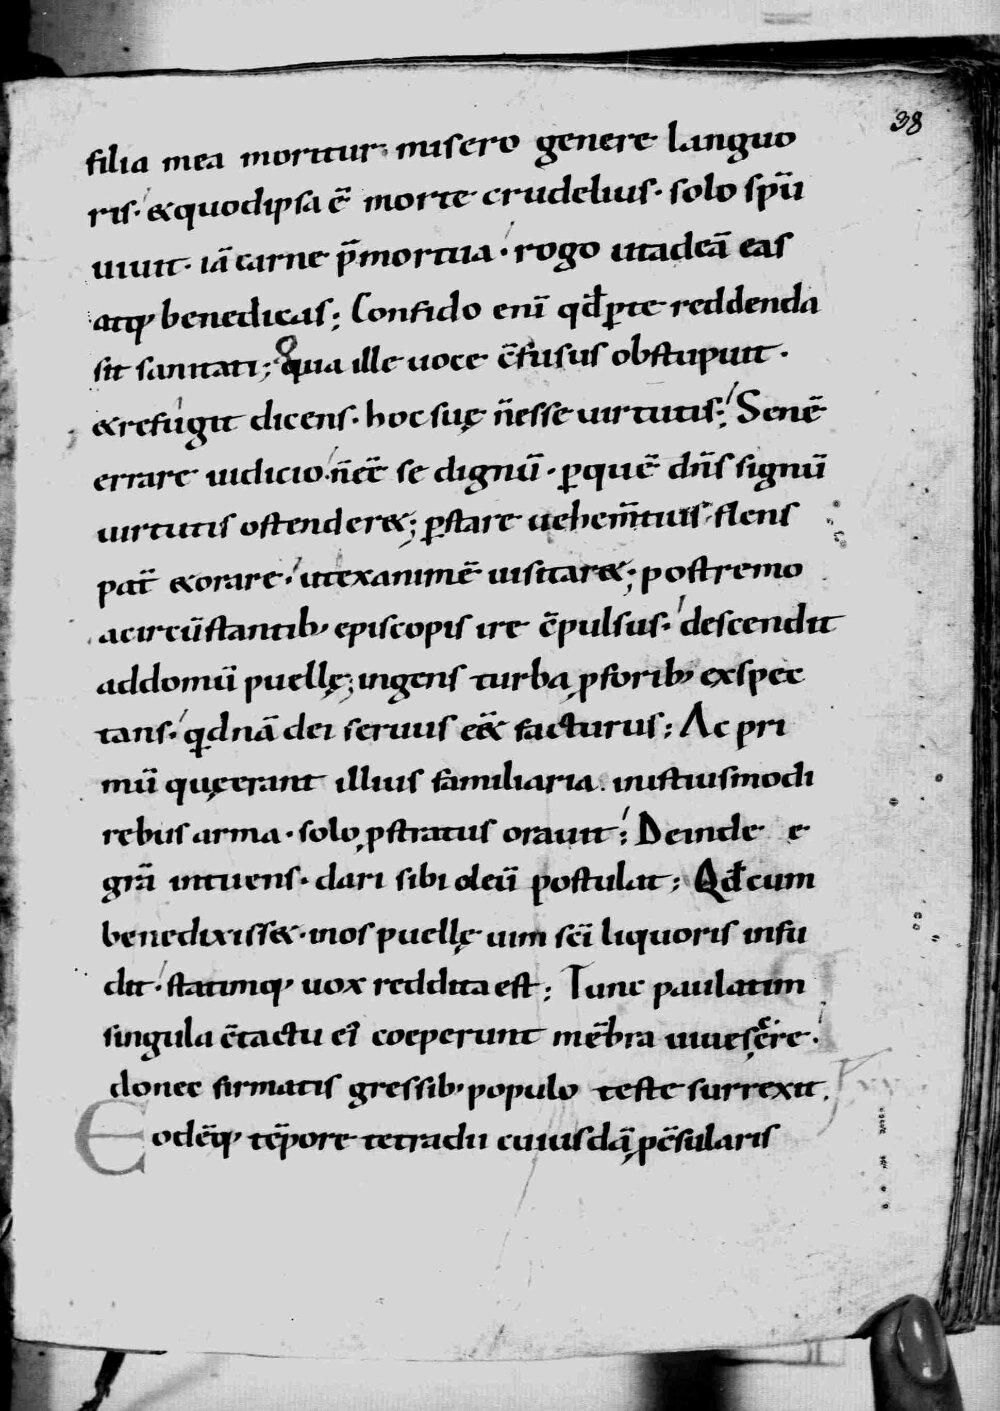 38
filia mea moritur· misero genere languo
ris· & quod ipsa ē morte crudelius· solo sp̄u
uiuit· iā carne p̄mortua· rogo ut adeā eas
atq; benedicas; Confido enī qđ ꝑ te reddenda
sit sanitati; qua ille uoce c̄fusus obstupuit·
& refugit dicens· hoc suę n̄ esse uirtutis; Senē
errare iudicio· n̄ eē se dignū· ꝑ quē dn̄s signū
uirtutis ostender&; ꝑstare uehem̄tius flens
pat̄ & orare· ut exanimē uisitar&; postremo
a circūstantib; episcopis ire c̄pulsus· descendit
ad domū puellę; ingens turba p̱ forib; exspec
tans· qd nā dei seruus eēt facturus; Ac pri
mū quę erant illius familiaria in istiusmodi
rebus arma· solo p̱stratus orauit; Deinde e
grā intuens· dari sibi oleū postulat; Qđ cum
benedixiss&· in os puellę uim sc̄i liquoris infu
dit· statimq; uox reddita est; Tunc paulatim
singula c̄tactu ei coeperunt mēbra uiuescere·
donec firmatis gressib; populo teste surrexit.
Eodēq; tēpore tetradii cuiusdā p̱c̄sularis